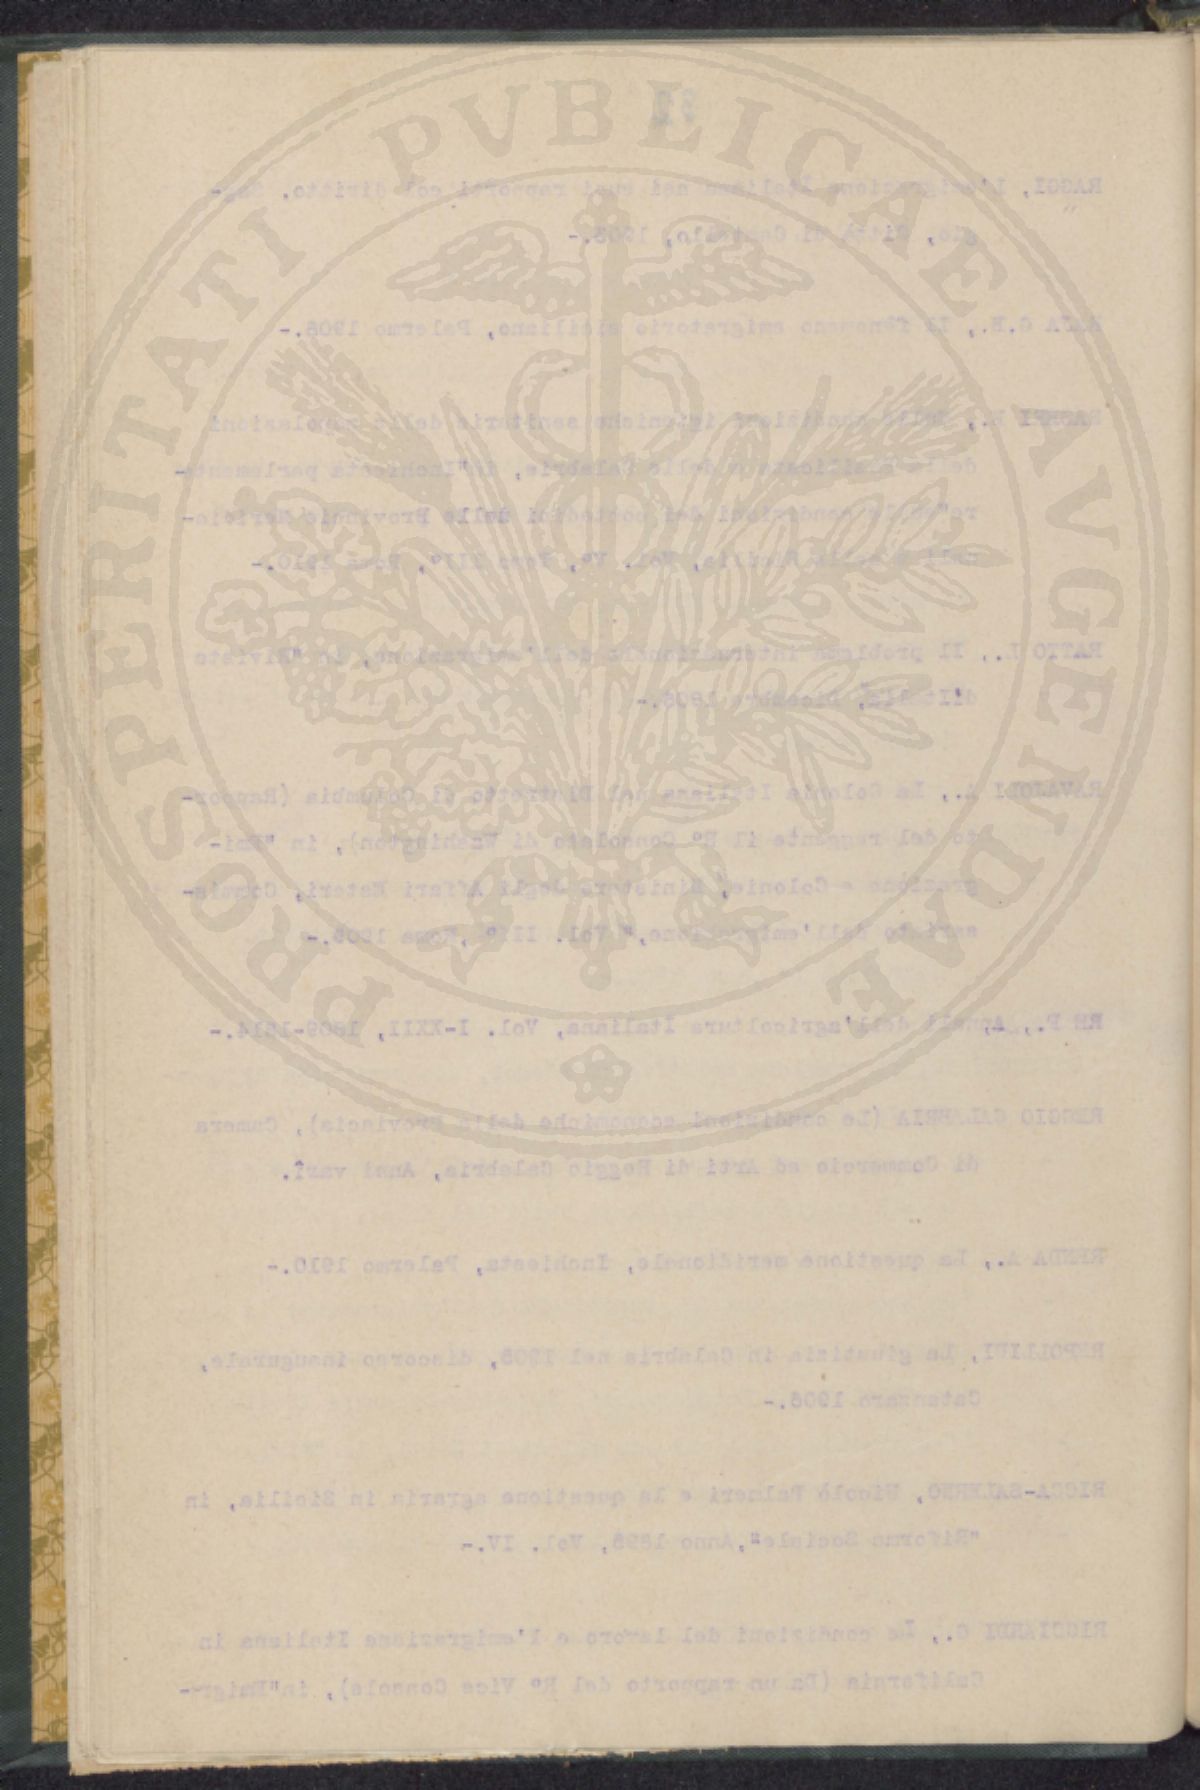 PROSPERITATI PVBLICAE AVGENDAE
32
RAGGI, l'emigrazione Italiana nei suoi rapporti col diritto. Sag-
gio, Città di Castello, 1903.-
RAJA G.E., Il fenomeno emigratorio siciliano, Palermo 1908.-
condizioni igieniche sanitarie delle popolazioni
della Basilicata e della Calabria, in "Inchiesta parlamenta-
re "sulle condizioni dei contadini delle Provincie Meridio-
nali e della Sicilia, Vol. Vº, Tomo IIIº, Roma 1910.-
RATTO L., Il problema internazionale dell'emigrazione, in "Rivista
d'Italia", Dicembre 1906.-
RAVAJOLI A., La Colonia Italiana nel Distretto di Columbia (Rappor-
to del reggente il Rº Consolato di Washington), in "Emi-
grazione e Colonie", Ministero degli Affari Esteri, Commis-
sariato dell'emigrazione," Vol. IIIº, Roma 1909.-
RE F., Annali dell'agricoltura Italiana, Vol. I-XXII, 1809-1814.-
REGGIO CALABRIA (Le condizioni economiche della Provincia), Camera
di Commercio ed Arti di Reggio Calabria, Anni varî.
RENDA A., La questione meridionale, Inchiesta, Palermo 1910.-
La giustizia in Calabria nel 1905, discorso inaugurale,
Catanzaro 1906.-
RICCA-SALERNO, Nicolò Palmeri e la questione agraria in Sicilia, in
"Riforma Sociale", Anno 1895, Vol. IV.-
RICCIARDI G., Le condizioni del lavoro e l'emigrazione Italiana in
California (Da un rapporto del Rº Vice Console), in "Emigr-